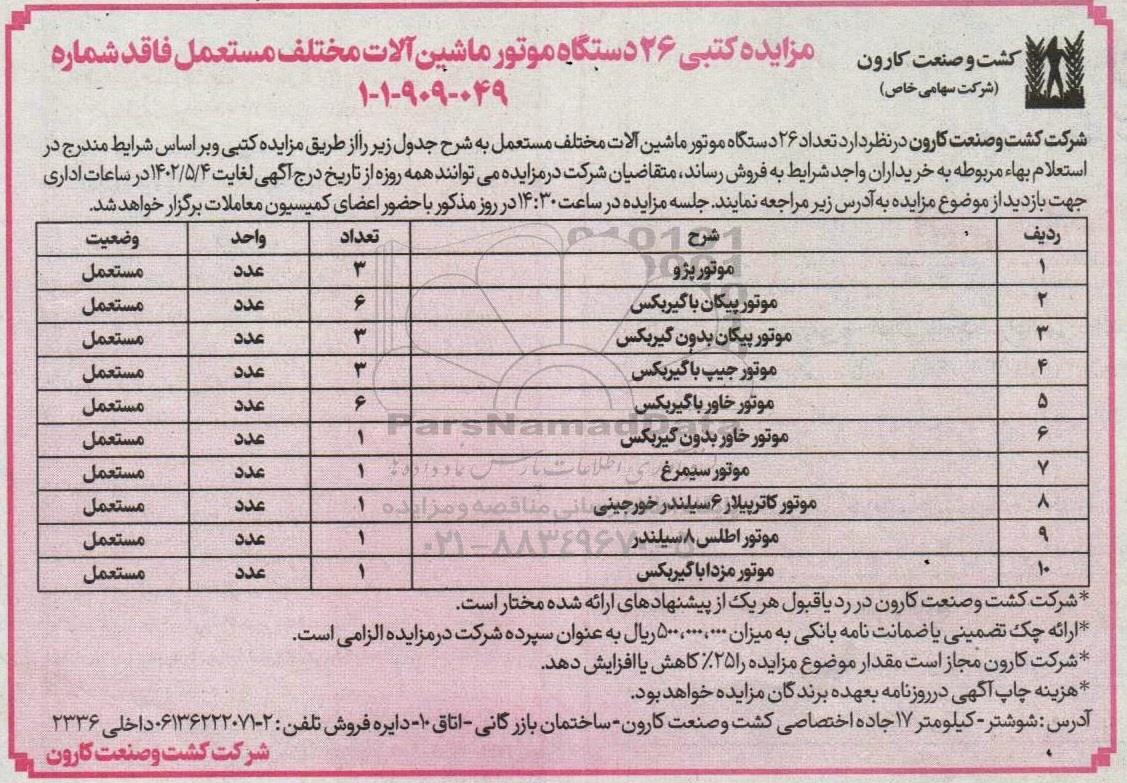 کشت و صنعت کارون
(شرکت سهامی خاص)
مزایده کتبی ۲۶ دستگاه موتور ماشین آلات مختلف مستعمل فاقد شماره
۱-۱-۹۰۹-۰۴۹
شرکت کشت و صنعت کارون در نظر دارد تعداد ۲۶ دستگاه موتور ماشین آلات مختلف مستعمل به شرح جدول زیر را از طریق مزایده کتبی و بر اساس شرایط مندرج در
استعلام بهاء مربوطه به خریداران واجد شرایط به فروش رساند، متقاضیان شرکت در مزایده می توانند همه روزه از تاریخ درج آگهی لغایت ۱۴۰۲/۵/۴ در ساعات اداری
جهت بازدید از موضوع مزایده به آدرس زیر مراجعه نمایند. جلسه مزایده در ساعت ۱۴:۳۰ در روز مذکور با حضور اعضای کمیسیون معاملات برگزار خواهد شد.
ردیف شرح تعداد واحد وضعیت
۱ موتور پژو ۳ عدد مستعمل
۲ موتور پیکان با گیربکس ۶ عدد مستعمل
۳ موتور پیکان بدون گیربکس ۳ عدد مستعمل
۴ موتور جیپ با گیربکس ۳ عدد مستعمل
۵ موتور خاور با گیربکس ۶ عدد مستعمل
۶ موتور خاور بدون گیربکس ۱ عدد مستعمل
۷ موتور سیمرغ ۱ عدد مستعمل
۸ موتور کاترپیلار ۶ سیلندر خورجینی ۱ عدد مستعمل
۹ موتور اطلس ۸ سیلندر ۱ عدد مستعمل
۱۰ موتور مزدا با گیربکس ۱ عدد مستعمل
ParsNamadData
*شرکت کشت و صنعت کارون در رد یا قبول هر یک از پیشنهادهای ارائه شده مختار است.
*ارائه چک تضمینی یا ضمانت نامه بانکی به میزان ۵۰۰،۰۰۰،۰۰۰ ریال به عنوان سپرده شرکت در مزایده الزامی است.
*شرکت کارون مجاز است مقدار موضوع مزایده را ۲۵٪ کاهش یا افزایش دهد.
*هزینه چاپ آگهی در روزنامه بعهده برندگان مزایده خواهد بود.
آدرس : شوشتر - کیلومتر ۱۷ جاده اختصاصی کشت و صنعت کارون - ساختمان بازرگانی - اتاق ۱۰ - دایره فروش تلفن : ۲-۰۶۱۳۶۲۲۲۰۷۱ داخلی ۲۳۳۶
شرکت کشت و صنعت کارون